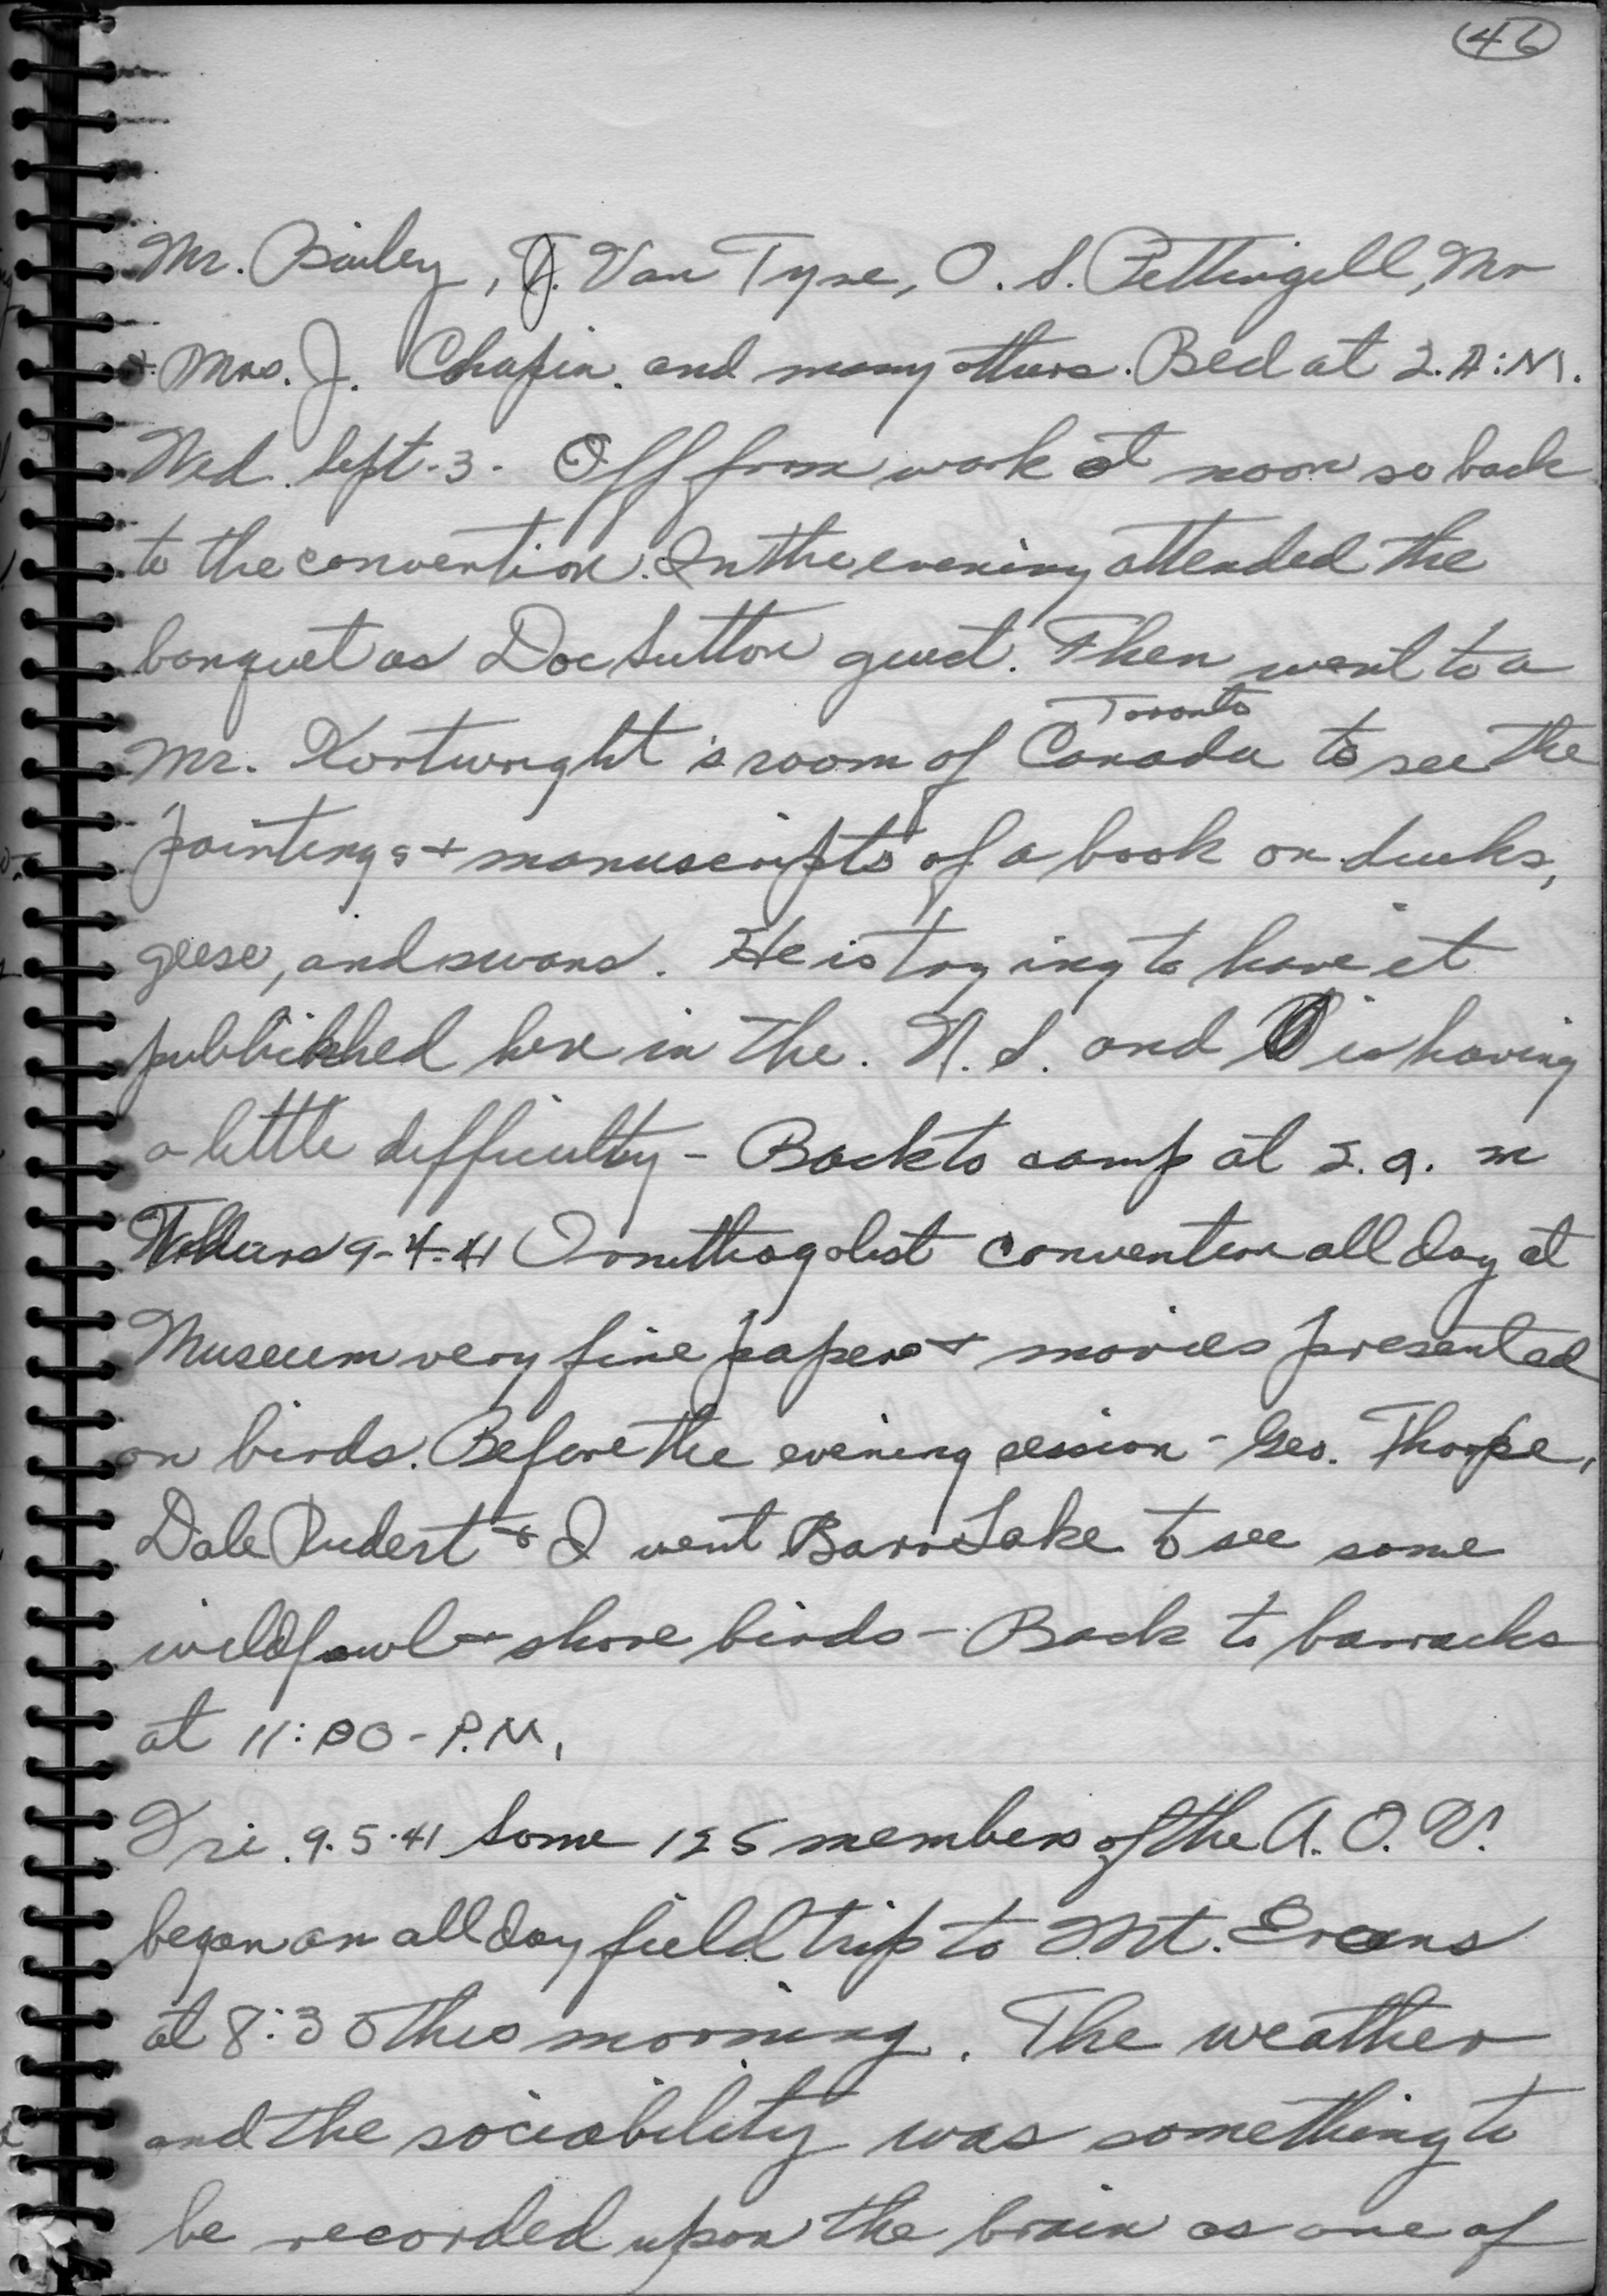 46
Mr. Bailey, J. Van Tyne, O. S. Pettingill, Mr
+ Mrs. J. Chapin. and many others. Bed at 2. A:M.
Wed. Sept. 3. Off from work at noon so back
to the convention. In the evening attended the
banquet as Doc Sutton guest. Then went to a
Toronto
Mr. Kortwright's room of Canada to see the
paintings + manuscripts of a book on ducks,
geese, and swans. He is trying to have it
published here in the. U. S. and is having
a little difficulty - Back to camp at 2. a. m
Thurs 9-4-41 Ornithogolist convention all day at
Museum very fine papers + movies presented
on birds. Before the evening session - Geo. Thorpe,
Dale Rudert + I went Barr Lake to see some
wildfowl + shore birds - Back to barracks
at 11:00 - P.M.
Fri. 9.5.41 Some 125 members of the A. O. U.
began an all day field trip to Mt. Evans
at 8:30 this morning. The weather
and the sociability was something to
be recorded upon the brain as one of